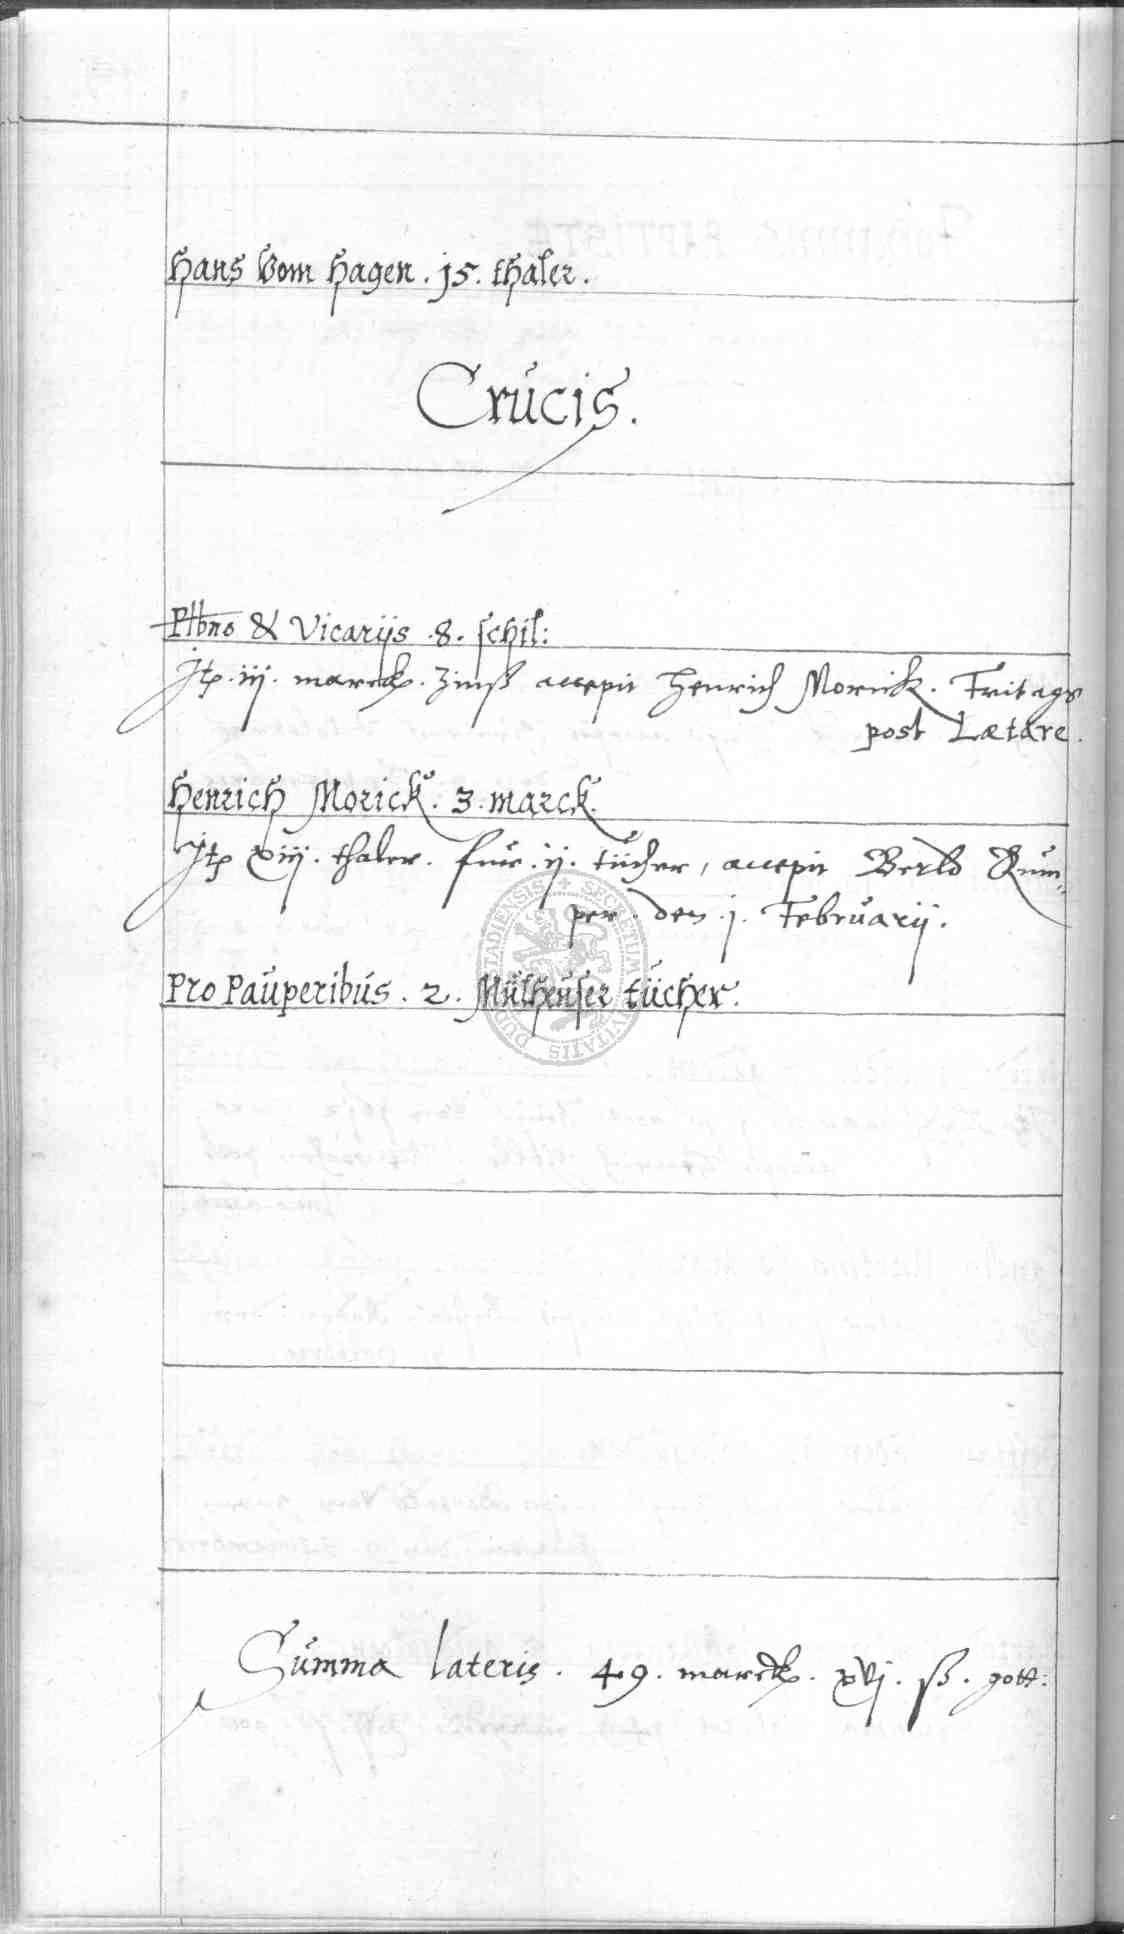 Hans Vom Hagen . 15 . thaler .
Crucis .
Plbno & Vicarijs . 8 . schil :
Jtp . iij . marck . Zinß accepit Henrich Morick . Fritags
post Lætare .
Henrich Morick . 3 . marck .
Jtp xiij . thaler . fur . ij . tücher , accepit Berld Kum-
per . den . j . Februarij .
Pro Pauperibus . 2 . Mülhenser tücher .
DUDERSTADIENSIS + SECRETUM CIVITATIS
Summa lateris . 49 . marck . xvj . ß . gott :